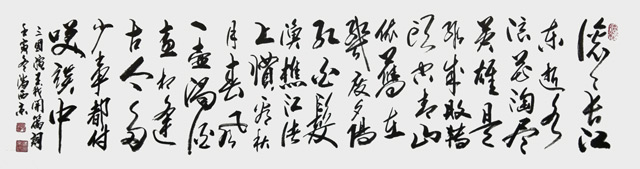 滚々长江
东逝水
浪花淘尽
英雄是
非成败转
头空青山
依旧在
几度夕阳
红白髮
渔樵江渚
上惯看秋
月春风
一壶浊酒
喜相逢
古今多
少事都付
笑谈中
三国演义开篇词
壬寅